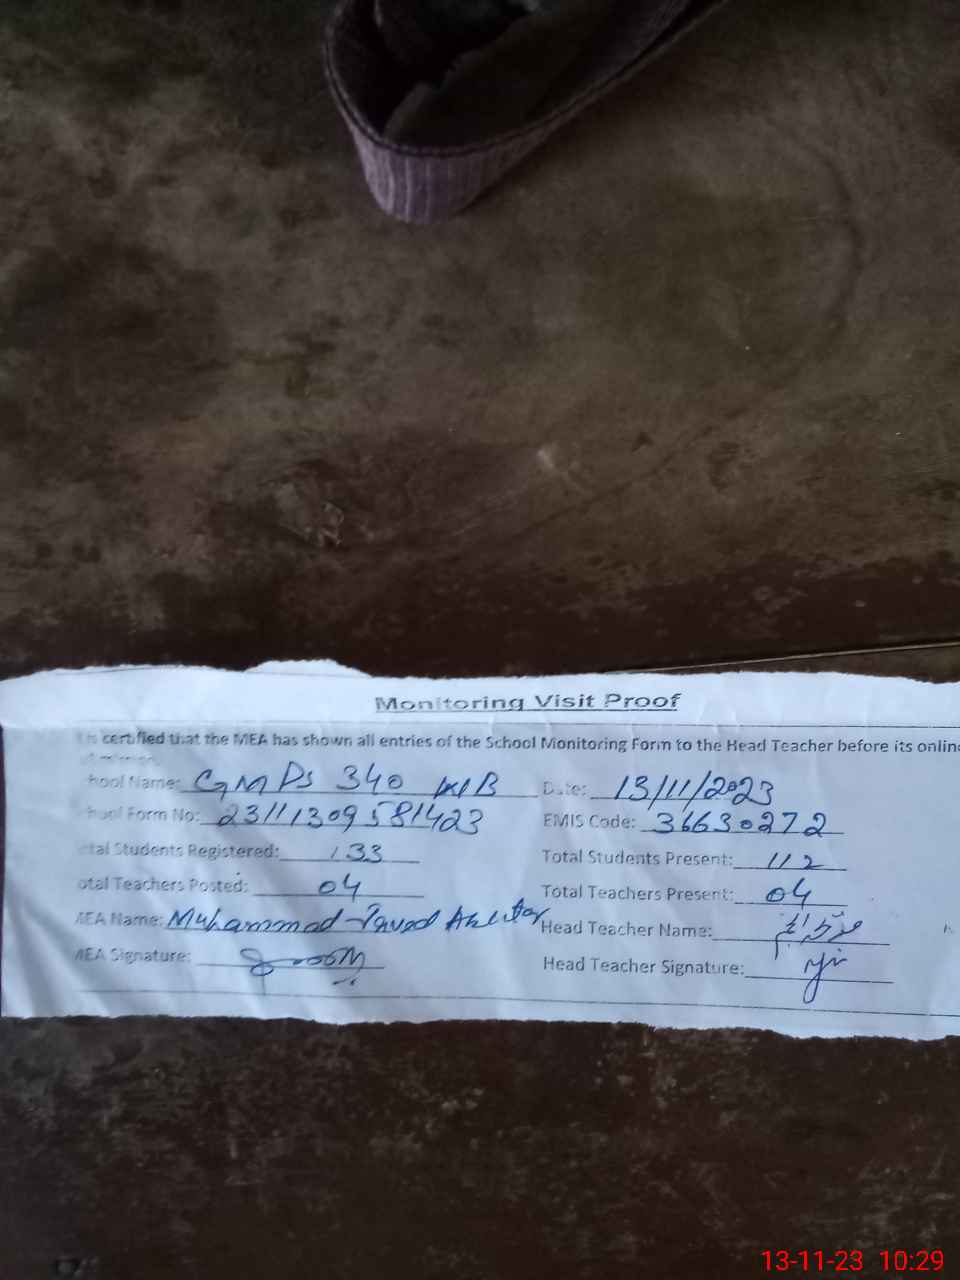 Monitoring Visit Proof
is certified that the MEA has shown all entries of the School Monitoring Form to the Head Teacher before its onlin
hool Name: GMPS 340 W/B Date: 13/11/2023
hool Form No: 23111309581423 EMIS Code: 36630272
otal Students Registered: 133 Total Students Present: 112
otal Teachers Posted: 04 Total Teachers Present: 04
MEA Name: Muhammad Javed Akhtar Head Teacher Name:
MEA Signature: Head Teacher Signature:
13-11-23 10:29